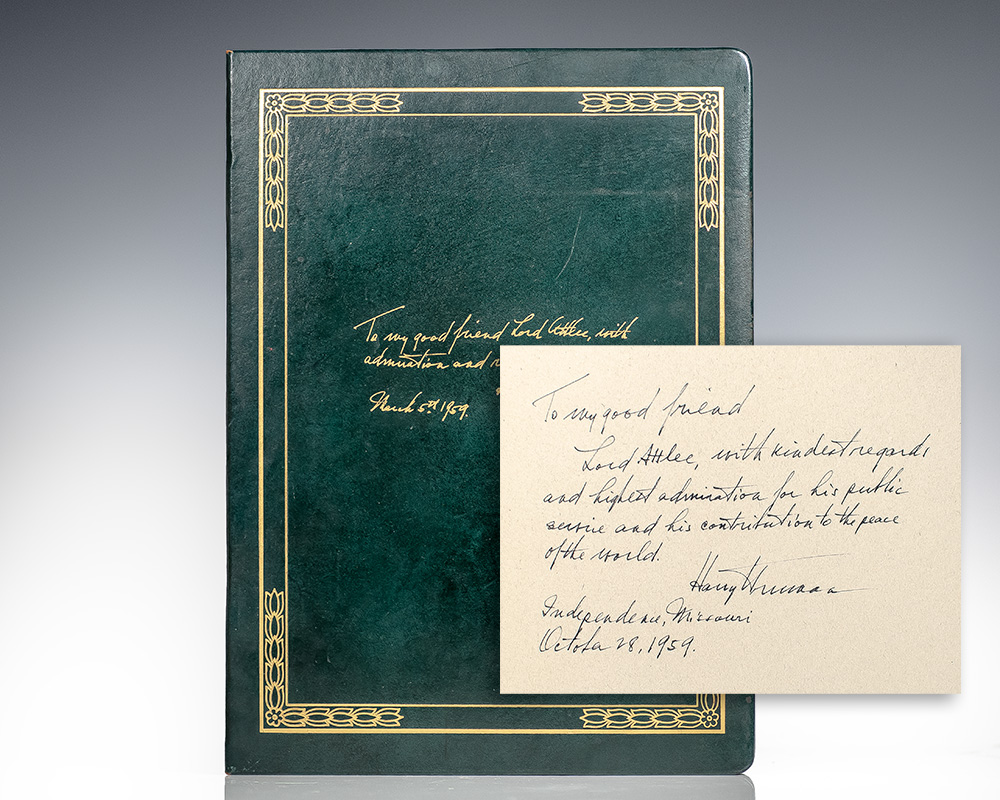 To my good friend Lord Attlee, with
admiration and
March 5th 1959.
To my good friend
Lord Attlee, with kindest regards
and highest admiration for his public
service and his contribution to the peace
of the world.
Harry Truman
Independence, Missouri
October 28, 1959.